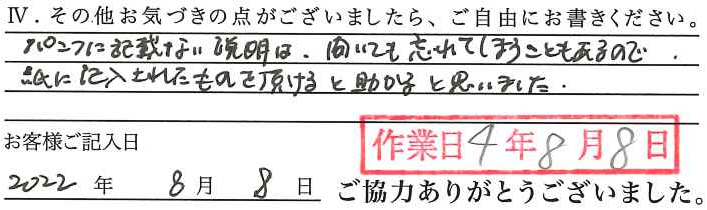 Ⅳ．その他お気づきの点がございましたら、ご自由にお書きください。
パンフに記載ない説明は、聞いても忘れてしまうこともあるので、
紙に記入されたものを頂けると助かると思いました。
お客様ご記入日
作業日4年8月8日
2022年 8月 8日 ご協力ありがとうございました。